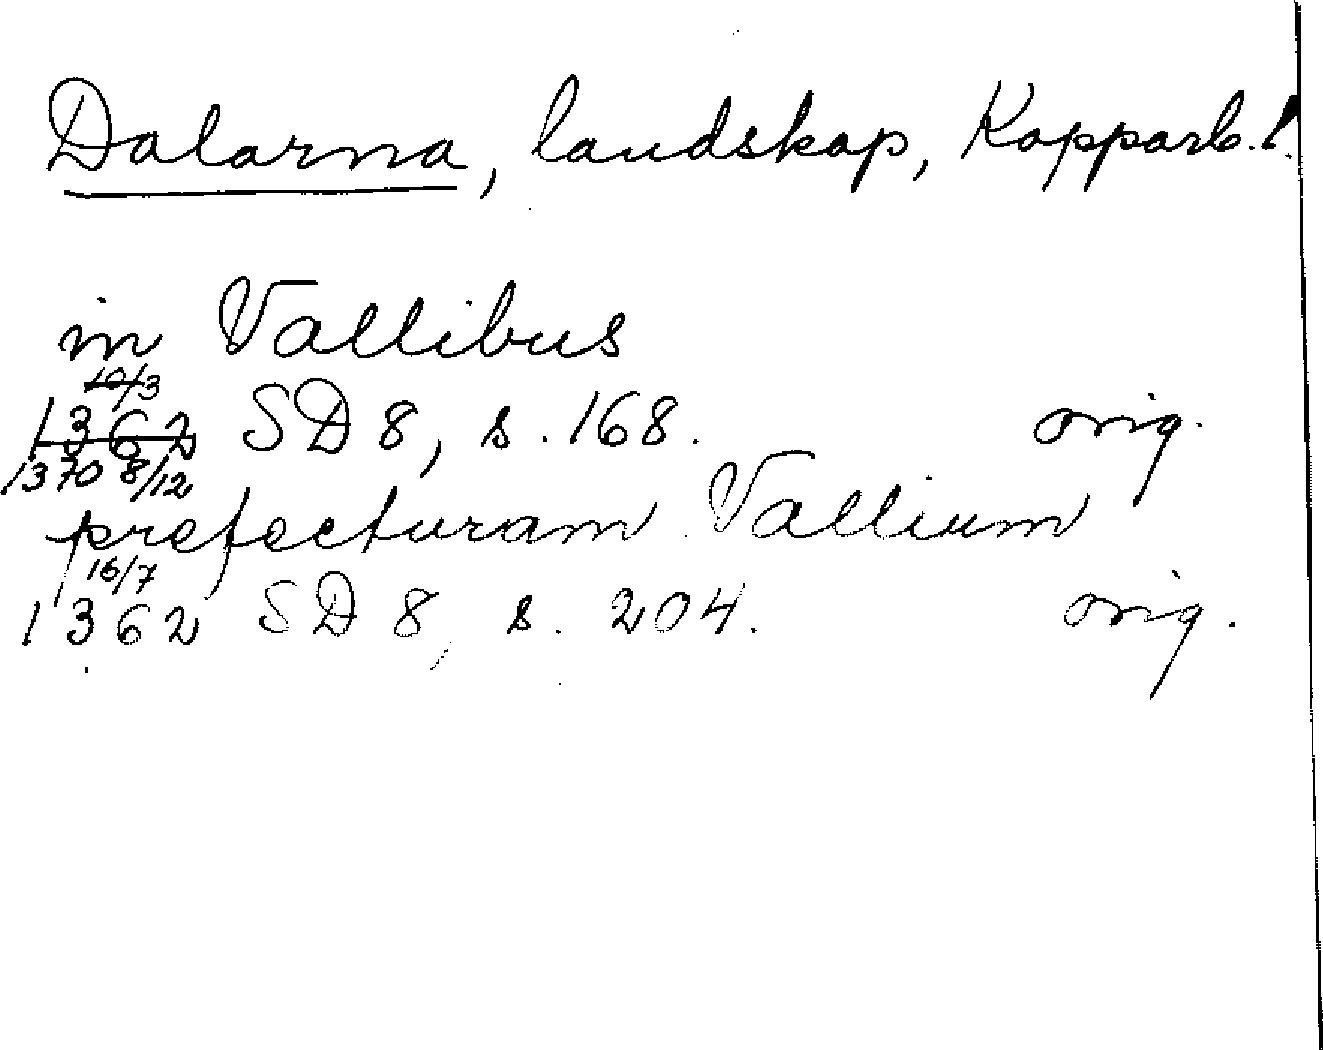 Dalarna, landskap, Kopparb.l.
in Vallibus
10/3
1362 SD 8, s. 168. orig.
1370 8/12
prefecturam Vallium
16/7
1362 SD 8, s. 204. orig.